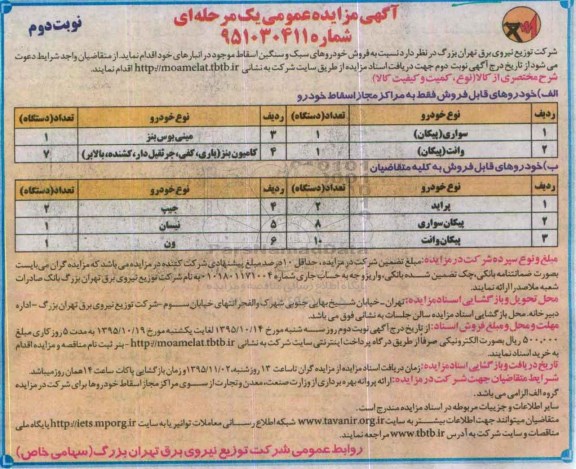 آگهی مزایده عمومی یک مرحله‌ای
نوبت دوم
شماره ۹۵۱۰۳۰۴۱۱
شرکت توزیع نیروی برق تهران بزرگ در نظر دارد نسبت به فروش خودروهای سبک و سنگین اسقاط موجود در انبارهای خود اقدام نماید. از متقاضیان واجد شرایط دعوت
می شود از تاریخ درج آگهی نوبت دوم جهت دریافت اسناد مزایده از طریق سایت شرکت به نشانی http://moamelat.tbtb.ir اقدام نمایند.
شرح مختصری از کالا (نوع، کمیت و کیفیت کالا)
الف) خودروهای قابل فروش فقط به مراکز مجاز اسقاط خودرو
ردیف نوع خودرو تعداد(دستگاه) ردیف نوع خودرو تعداد(دستگاه)
۱ سواری(پیکان) ۱ ۳ مینی بوس بنز ۱
۲ وانت(پیکان) ۱ ۴ کامیون بنز(باری، کفی، جرثقیل دار، کشنده، بالابر) ۷
ب) خودروهای قابل فروش به کلیه متقاضیان
ردیف نوع خودرو تعداد(دستگاه) ردیف نوع خودرو تعداد(دستگاه)
۱ پراید ۲ ۴ جیپ ۲
۲ پیکان سواری ۸ ۵ نیسان ۱
۳ پیکان وانت ۱۰ ۶ ون ۱
مبلغ و نوع سپرده شرکت در مزایده: مبلغ تضمین شرکت در مزایده، حداقل ۱۰ درصد مبلغ پیشنهادی شرکت کننده در مزایده می باشد که مزایده گران می بایست
بصورت ضمانتنامه بانکی، چک تضمین شده بانکی، واریز وجه به حساب جاری شماره ۰۱۰۱۸۰۱۱۷۹۰۰۴ به نام شرکت توزیع نیروی برق تهران بزرگ بانک صادرات
شعبه ملاصدرا ارائه نمایند.
محل تحویل و بازگشایی اسناد مزایده: تهران - خیابان ششم بهایی جنوبی شهرک والفجر انتهای خیابان سوم - شرکت توزیع نیروی برق تهران بزرگ - اداره
دبیرخانه. محل بازگشایی اسناد مزایده سالن جلسات به نشانی فوق می باشد.
مهلت و محل و مبلغ فروش اسناد: از تاریخ درج آگهی نوبت دوم روز سه شنبه مورخ ۱۳۹۵/۱۰/۱۴ لغایت یکشنبه مورخ ۱۳۹۵/۱۰/۱۹ به مدت ۵ روز کاری مبلغ
۵۰۰,۰۰۰ ریال بصورت الکترونیکی صرفا از طریق درگاه پرداخت اینترنتی سایت شرکت به نشانی http://moamelat.tbtb.ir - بنر ثبت نام مناقصه و مزایده اقدام
به خرید اسناد نمایند.
تاریخ دریافت و بازگشایی اسناد مزایده: زمان دریافت اسناد مزایده از مزایده گران تا ساعت ۱۳ روز شنبه، ۱۳۹۵/۱۱/۰۲ و زمان بازگشایی پاکات ساعت ۱۴ همان روز میباشد
شرایط متقاضیان جهت شرکت در مزایده: ارائه پروانه بهره برداری از وزارت صنعت، معدن و تجارت از سوی مراکز مجاز اسقاط خودروها برای شرکت در مزایده
گروه الف الزامی می باشد.
سایر اطلاعات و جزییات مربوطه در اسناد مزایده مندرج است.
متقاضیان میتوانند جهت اطلاعات بیشتر به سایت www.tavanir.org.ir شبکه اطلاع رسانی معاملات توانیر یا به سایت http://iets.mporg.ir پایگاه ملی
مناقصات و سایت شرکت به آدرس www.tbtb.ir مراجعه نمایند.
روابط عمومی شرکت توزیع نیروی برق تهران بزرگ (سهامی خاص)